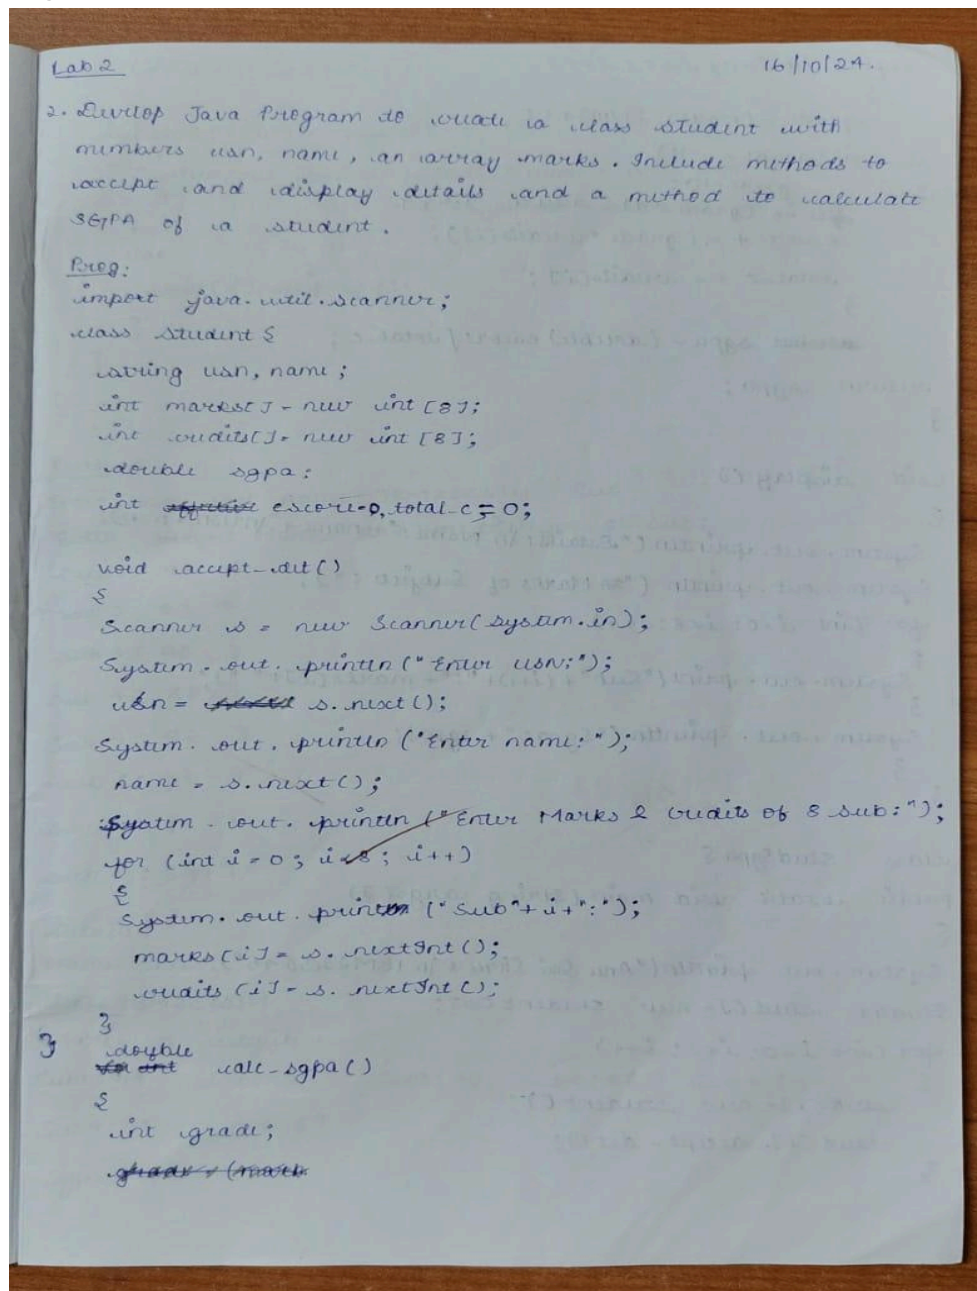 Lab 2
16/10/24.
2. Develop Java Program to create a class student with
members usn, name, an array marks. Include methods to
accept and display details and a method to calculate
SGPA of a student.
Prog:
import java.util.scanner;
class student {
string usn, name;
int marks[] = new int [8];
int credits[] = new int [8];
double sgpa;
int escore=0, total_c = 0;
void accept_det()
{
Scanner s = new Scanner(system.in);
System.out.println("Enter USN:");
usn = s.next();
System.out.println("Enter name:");
name = s.next();
System.out.println("Enter Marks & credits of 8 sub:");
for (int i = 0; i<8; i++)
{
System.out.print("Sub"+i+":");
marks[i] = s.nextInt();
credits[i] = s.nextInt();
}
}
double
calc_sgpa()
{
int grade;